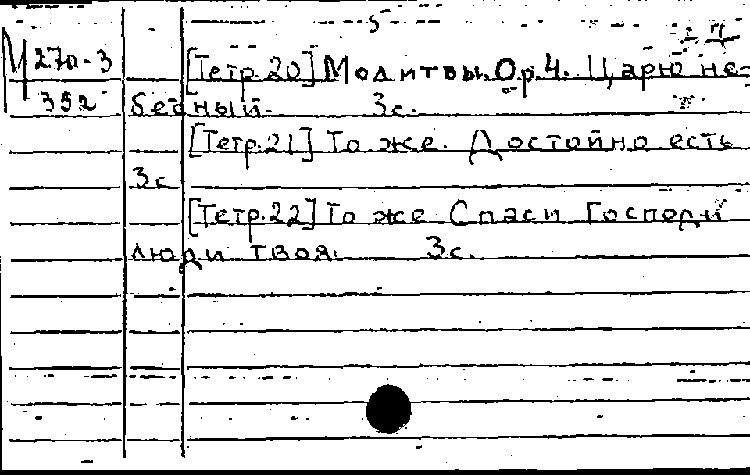 5
М 270-3
352
[Тетр.20] Молитвы. Ор.4. Царю не-
бесный. 3с.
[Тетр.21] То же. Достойно есть
3с
[Тетр.22] То же Спаси Господи
люди твоя. 3с.